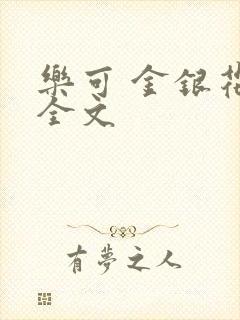 樂可 金銀花
全文
有夢之人